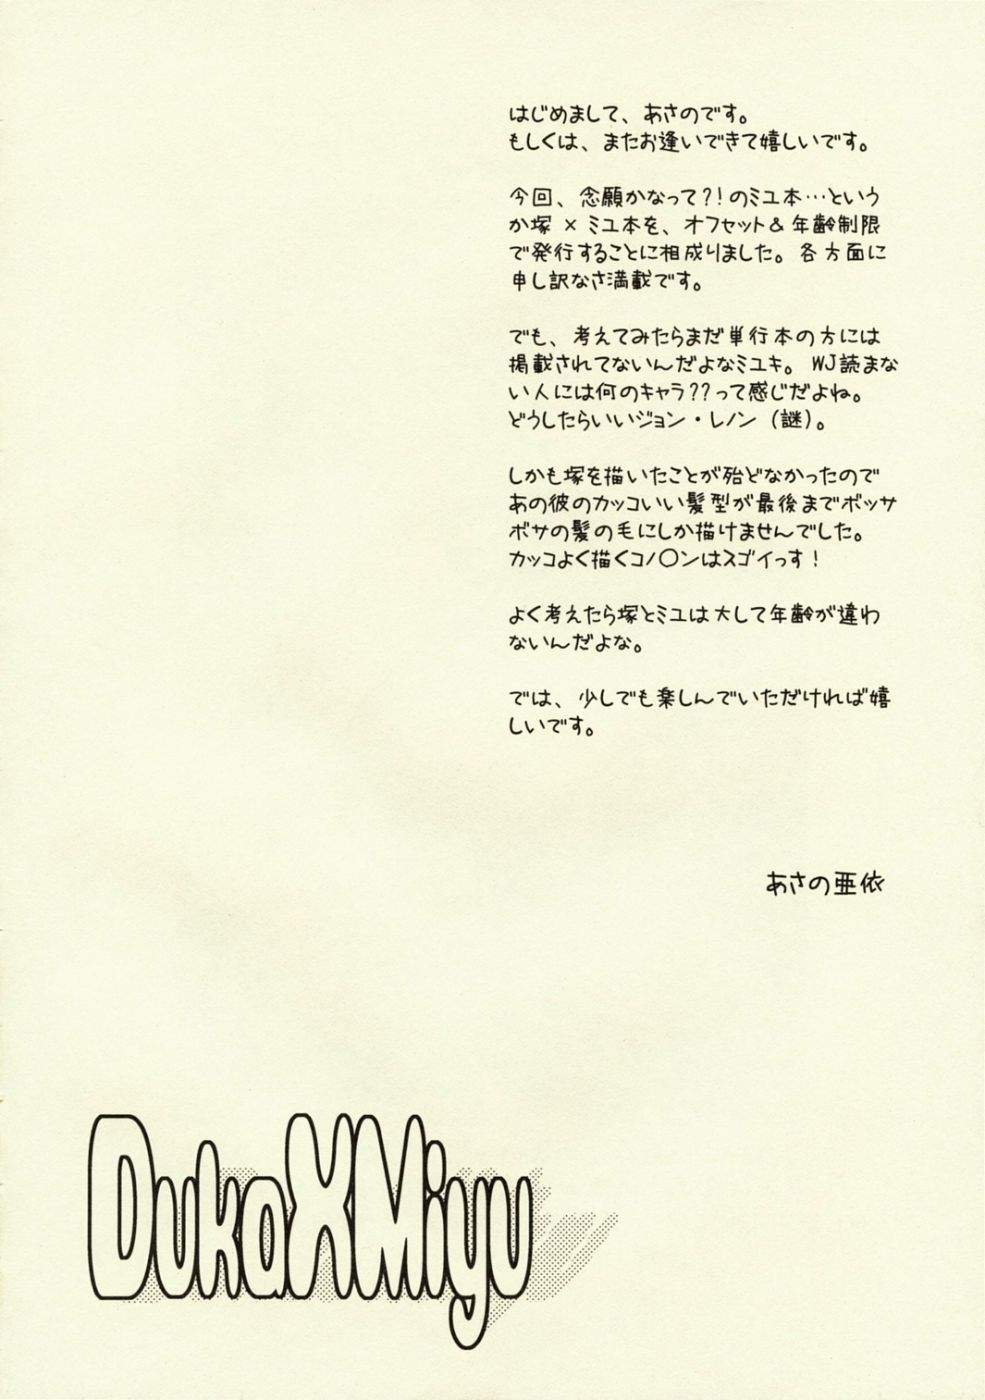 はじめまして、あさのです。
もしくは、またお逢いできて嬉しいです。
今回、念願かなって?!のミユ本…という
か塚 × ミユ本を、オフセット&年齢制限
で発行することに相成りました。各方面に
申し訳なさ満載です。
でも、考えてみたらまだ単行本の方には
掲載されてないんだよなミユキ。WJ読まな
い人には何のキャラ??って感じだよね。
どうしたらいいジョン・レノン(謎)。
しかも塚を描いたことが殆どなかったので
あの彼のカッコいい髪型が最後までボッサ
ボサの髪の毛にしか描けませんでした。
カッコよく描くコノ〇ンはスゴイっす!
よく考えたら塚とミユは大して年齢が違わ
ないんだよな。
では、少しでも楽しんでいただければ嬉
しいです。
あさの亜依
DukaXMiyu